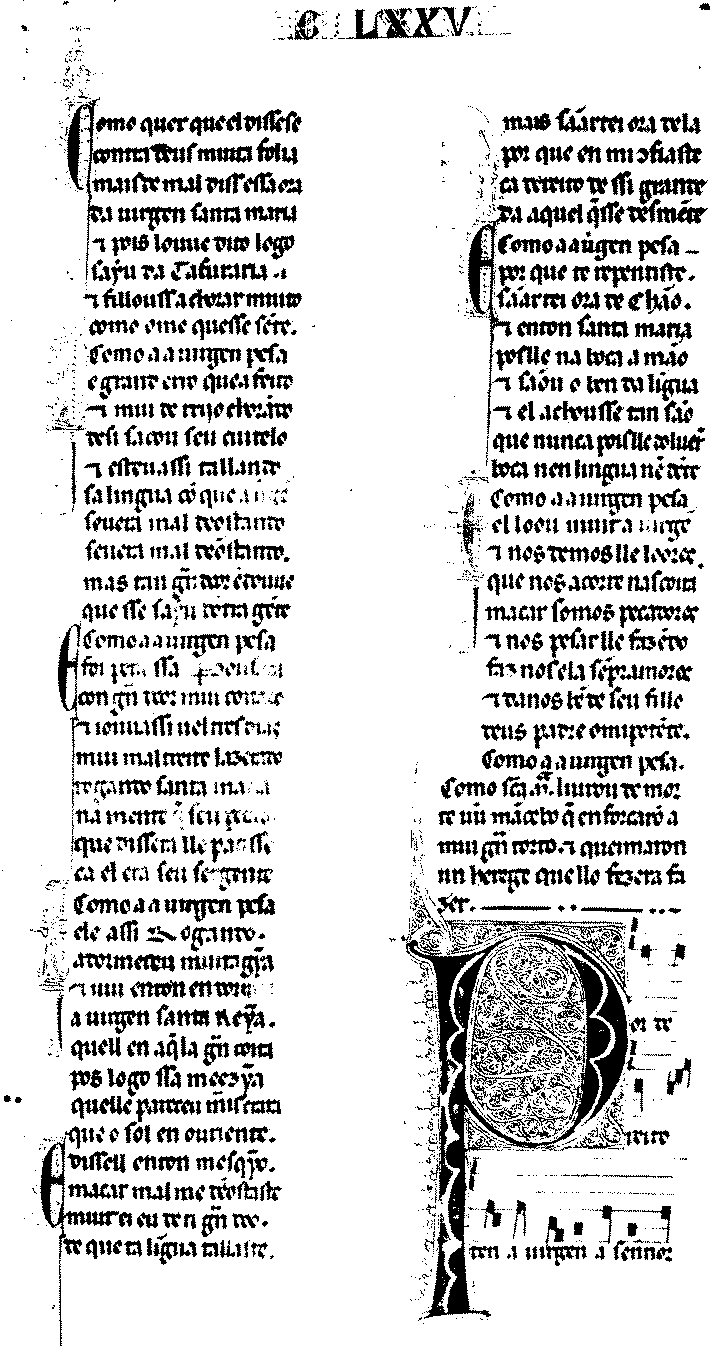 C LXXV
Como quer que el dissesse
contra deus muita folia
mais de mal diss essa ora
da uirgen santa maria
⁊ pois louue dito logo
sayu da Tafuraria
⁊ fillouss a chorar muito
como ome que sse sẽte.
Como a a uirgen pesa
e grand erro que a feito
⁊ mui de rrijo chorãdo
desi sacou seu cuitelo
⁊ esteu assi tallando
sa lingua cõ que a
seuera mal deostando
seuera mal deõstando.
mas tan gñ door
que sse sayu dentr a gẽte
Como a a uirgen pesa
foi
con gñ door mui
⁊ iouu assi
mui mal treite lazerado
rogando santa maria
na mente
que dissera lle partisse
ca el era seu sergente
Como a a uirgen pesa
ele assi rogando.
atormentou
⁊ uiu enton en
a uirgen santa Reỹa.
quell en aq̃la gñ coita
pos logo ssa meezỹa
quelle pareceu
que o sol en ouriente.
dissell enton mesqỹo.
macar mal me deostaste
muit ei eu de ti gñ doo.
de que ta lĩgua tallaste.
mais sãar t ei ora dela
por que en mi ɔfiaste
ca dereito de ssi grande
da aquel q̃sse desmẽte
Como a a uirgen pesa
por que te repentiste.
sãar t ei ora de chão.
⁊ enton santa maria
poslle na boca a mão
⁊ sãou o ben da lĩgua
⁊ el achousse tan são
que nunca poislle
boca nen lingua nẽ dẽte
Como a a uirgen pesa
el loou
⁊ nos demos lle loores.
que nos acorre na coita
macar somos pecadores
⁊ nos pesar lle fazẽdo
faz nos ela sẽpr amores
⁊ danos bẽ de seu fillo
deus padre omipotẽte.
Como a a uirgen pesa.
Como scã m̃. liurou de mor
te uũ mãcebo q̃ enforcarõ a
mui gñ torto. ⁊ queimaron
un herege que llo fezera fa
zer.
Por de
reito
ten a uirgen a sennor